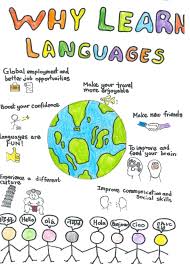 WHY LEARN
LANGUAGES
Global employment and
better job opportunities
Make your travel
more enjoyable
Boost your confidence
Make new friends
Languages are
FUN!
To improve and
feed your brain
Experience a different
culture
Improve communication and
social skills
Hello
Olá
Hola
Bonjour
Ciao